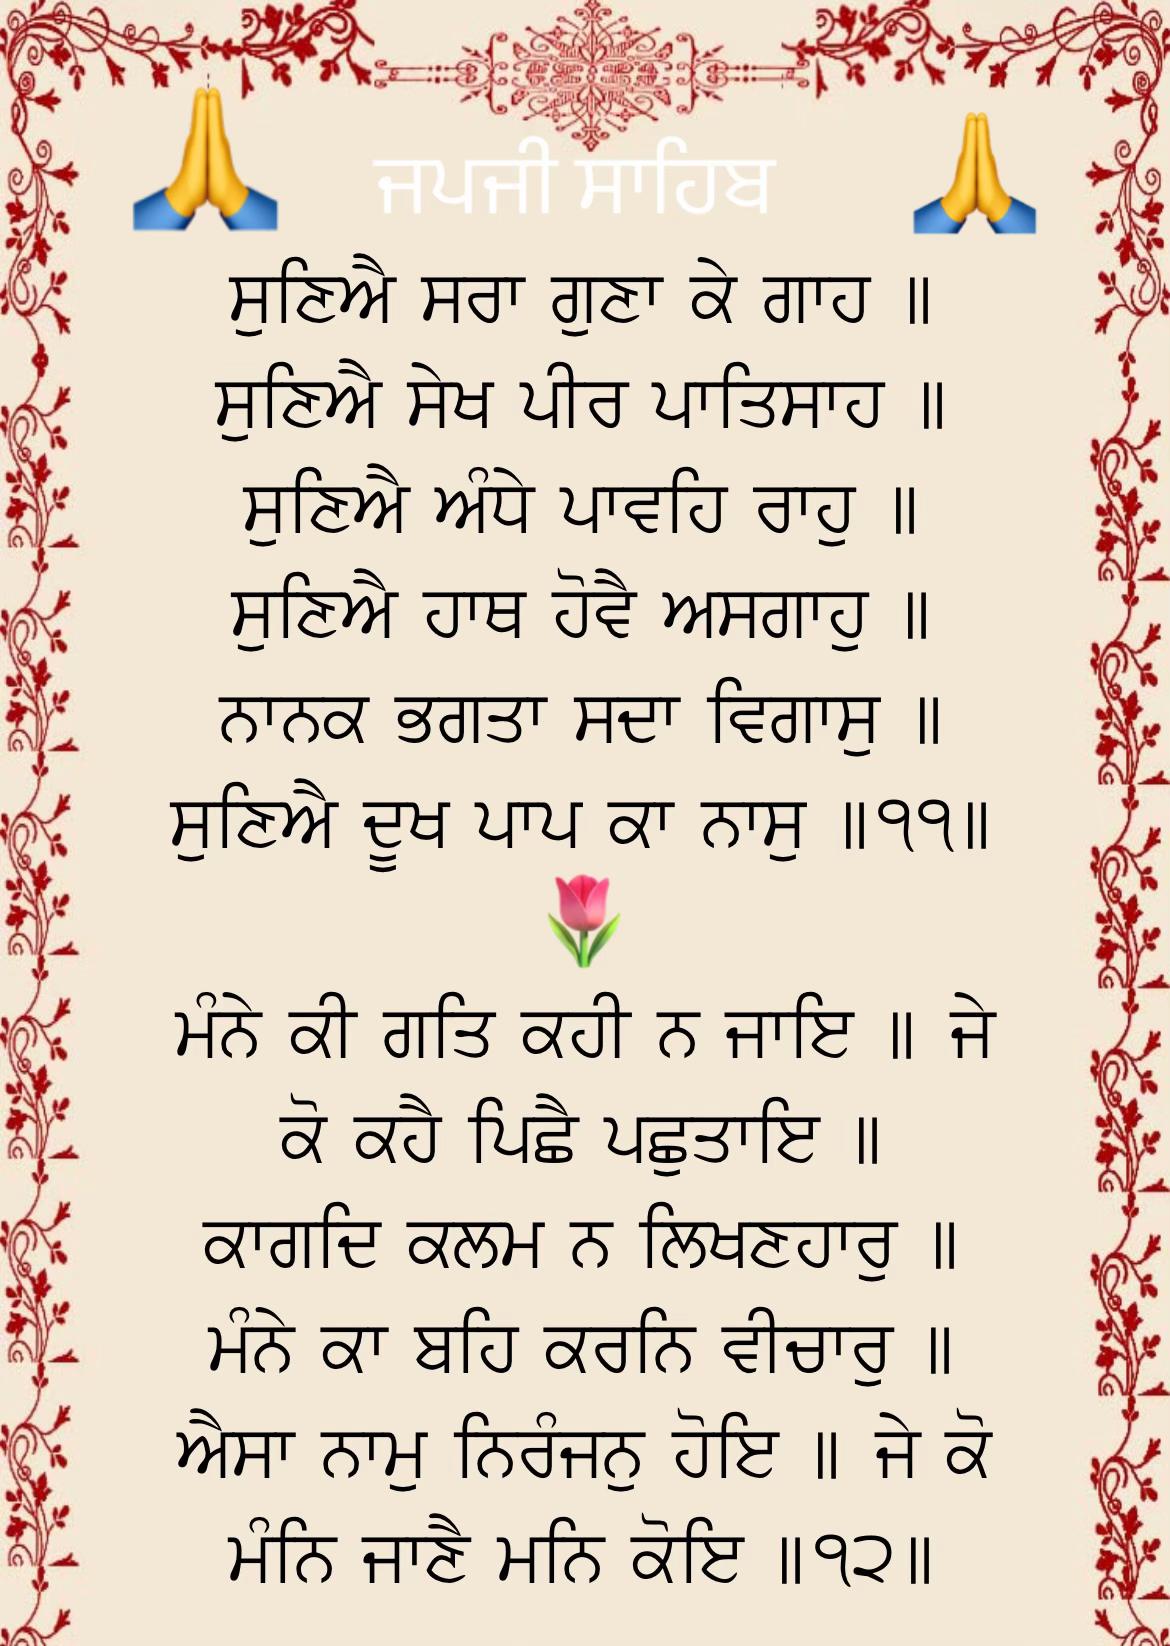 ਜਪਜੀ ਸਾਹਿਬ
ਸੁਣਿਐ ਸਰਾ ਗੁਣਾ ਕੇ ਗਾਹ ॥
ਸੁਣਿਐ ਸੇਖ ਪੀਰ ਪਾਤਿਸਾਹ ॥
ਸੁਣਿਐ ਅੰਧੇ ਪਾਵਹਿ ਰਾਹੁ ॥
ਸੁਣਿਐ ਹਾਥ ਹੋਵੈ ਅਸਗਾਹੁ ॥
ਨਾਨਕ ਭਗਤਾ ਸਦਾ ਵਿਗਾਸੁ ॥
ਸੁਣਿਐ ਦੂਖ ਪਾਪ ਕਾ ਨਾਸੁ ॥੧੧॥
ਮੰਨੇ ਕੀ ਗਤਿ ਕਹੀ ਨ ਜਾਇ ॥ ਜੇ
ਕੋ ਕਹੈ ਪਿਛੈ ਪਛੁਤਾਇ ॥
ਕਾਗਦਿ ਕਲਮ ਨ ਲਿਖਣਹਾਰੁ ॥
ਮੰਨੇ ਕਾ ਬਹਿ ਕਰਨਿ ਵੀਚਾਰੁ ॥
ਐਸਾ ਨਾਮੁ ਨਿਰੰਜਨੁ ਹੋਇ ॥ ਜੇ ਕੋ
ਮੰਨਿ ਜਾਣੈ ਮਨਿ ਕੋਇ ॥੧੨॥